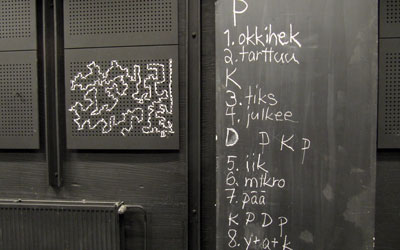 P
1. okkihek
2. tarttuu
K
3. tiks
4. julkee
D P K P
5. iik
6. mikro
7. pää
K P D P
8. y+a+k